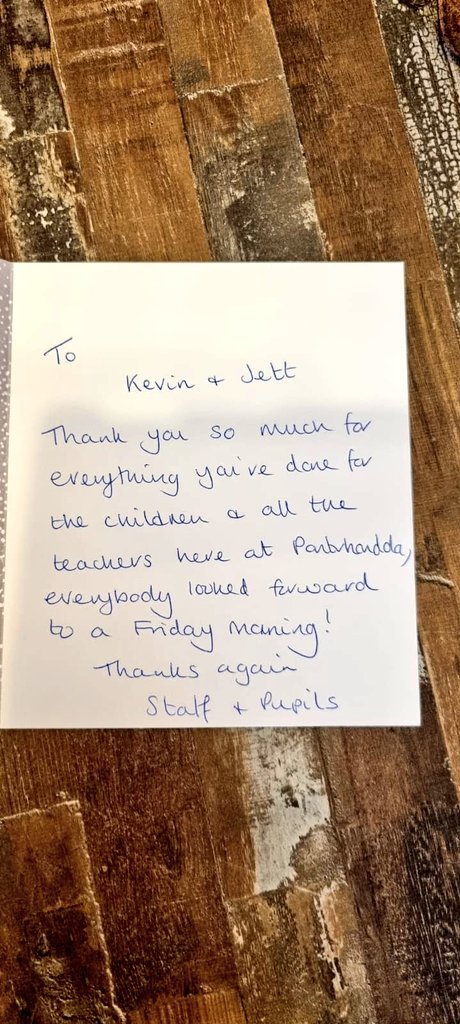 To
Kevin & Jett
Thank you so much for
everything you've done for
the children & all the
teachers here at
everybody looked forward
to a Friday morning!
Thanks again
Staff & Pupils